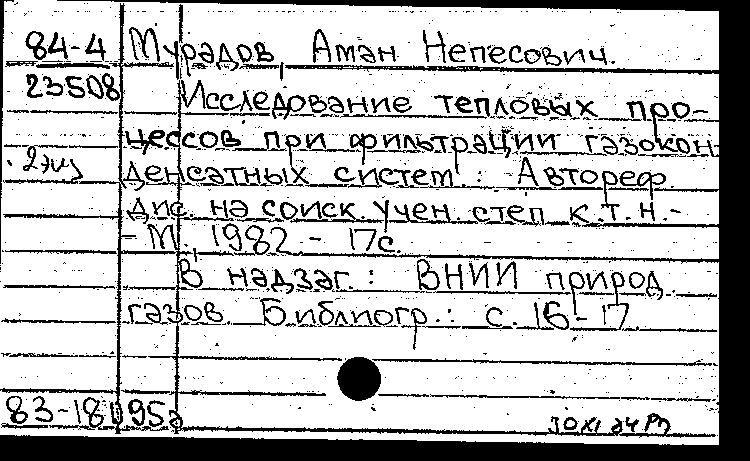 84-4 Мурадов, Аман Непесович.
23508 Исследование тепловых про-
цессов при фильтрации газокон
2 экз денсатных систем: Автореф.
дис. на соиск. учен. степ к.т.н.-
- М., 1982.- 17с.
В надзаг.: ВНИИ природ.
газов. Библиогр.: с. 16-17.
83-18095а